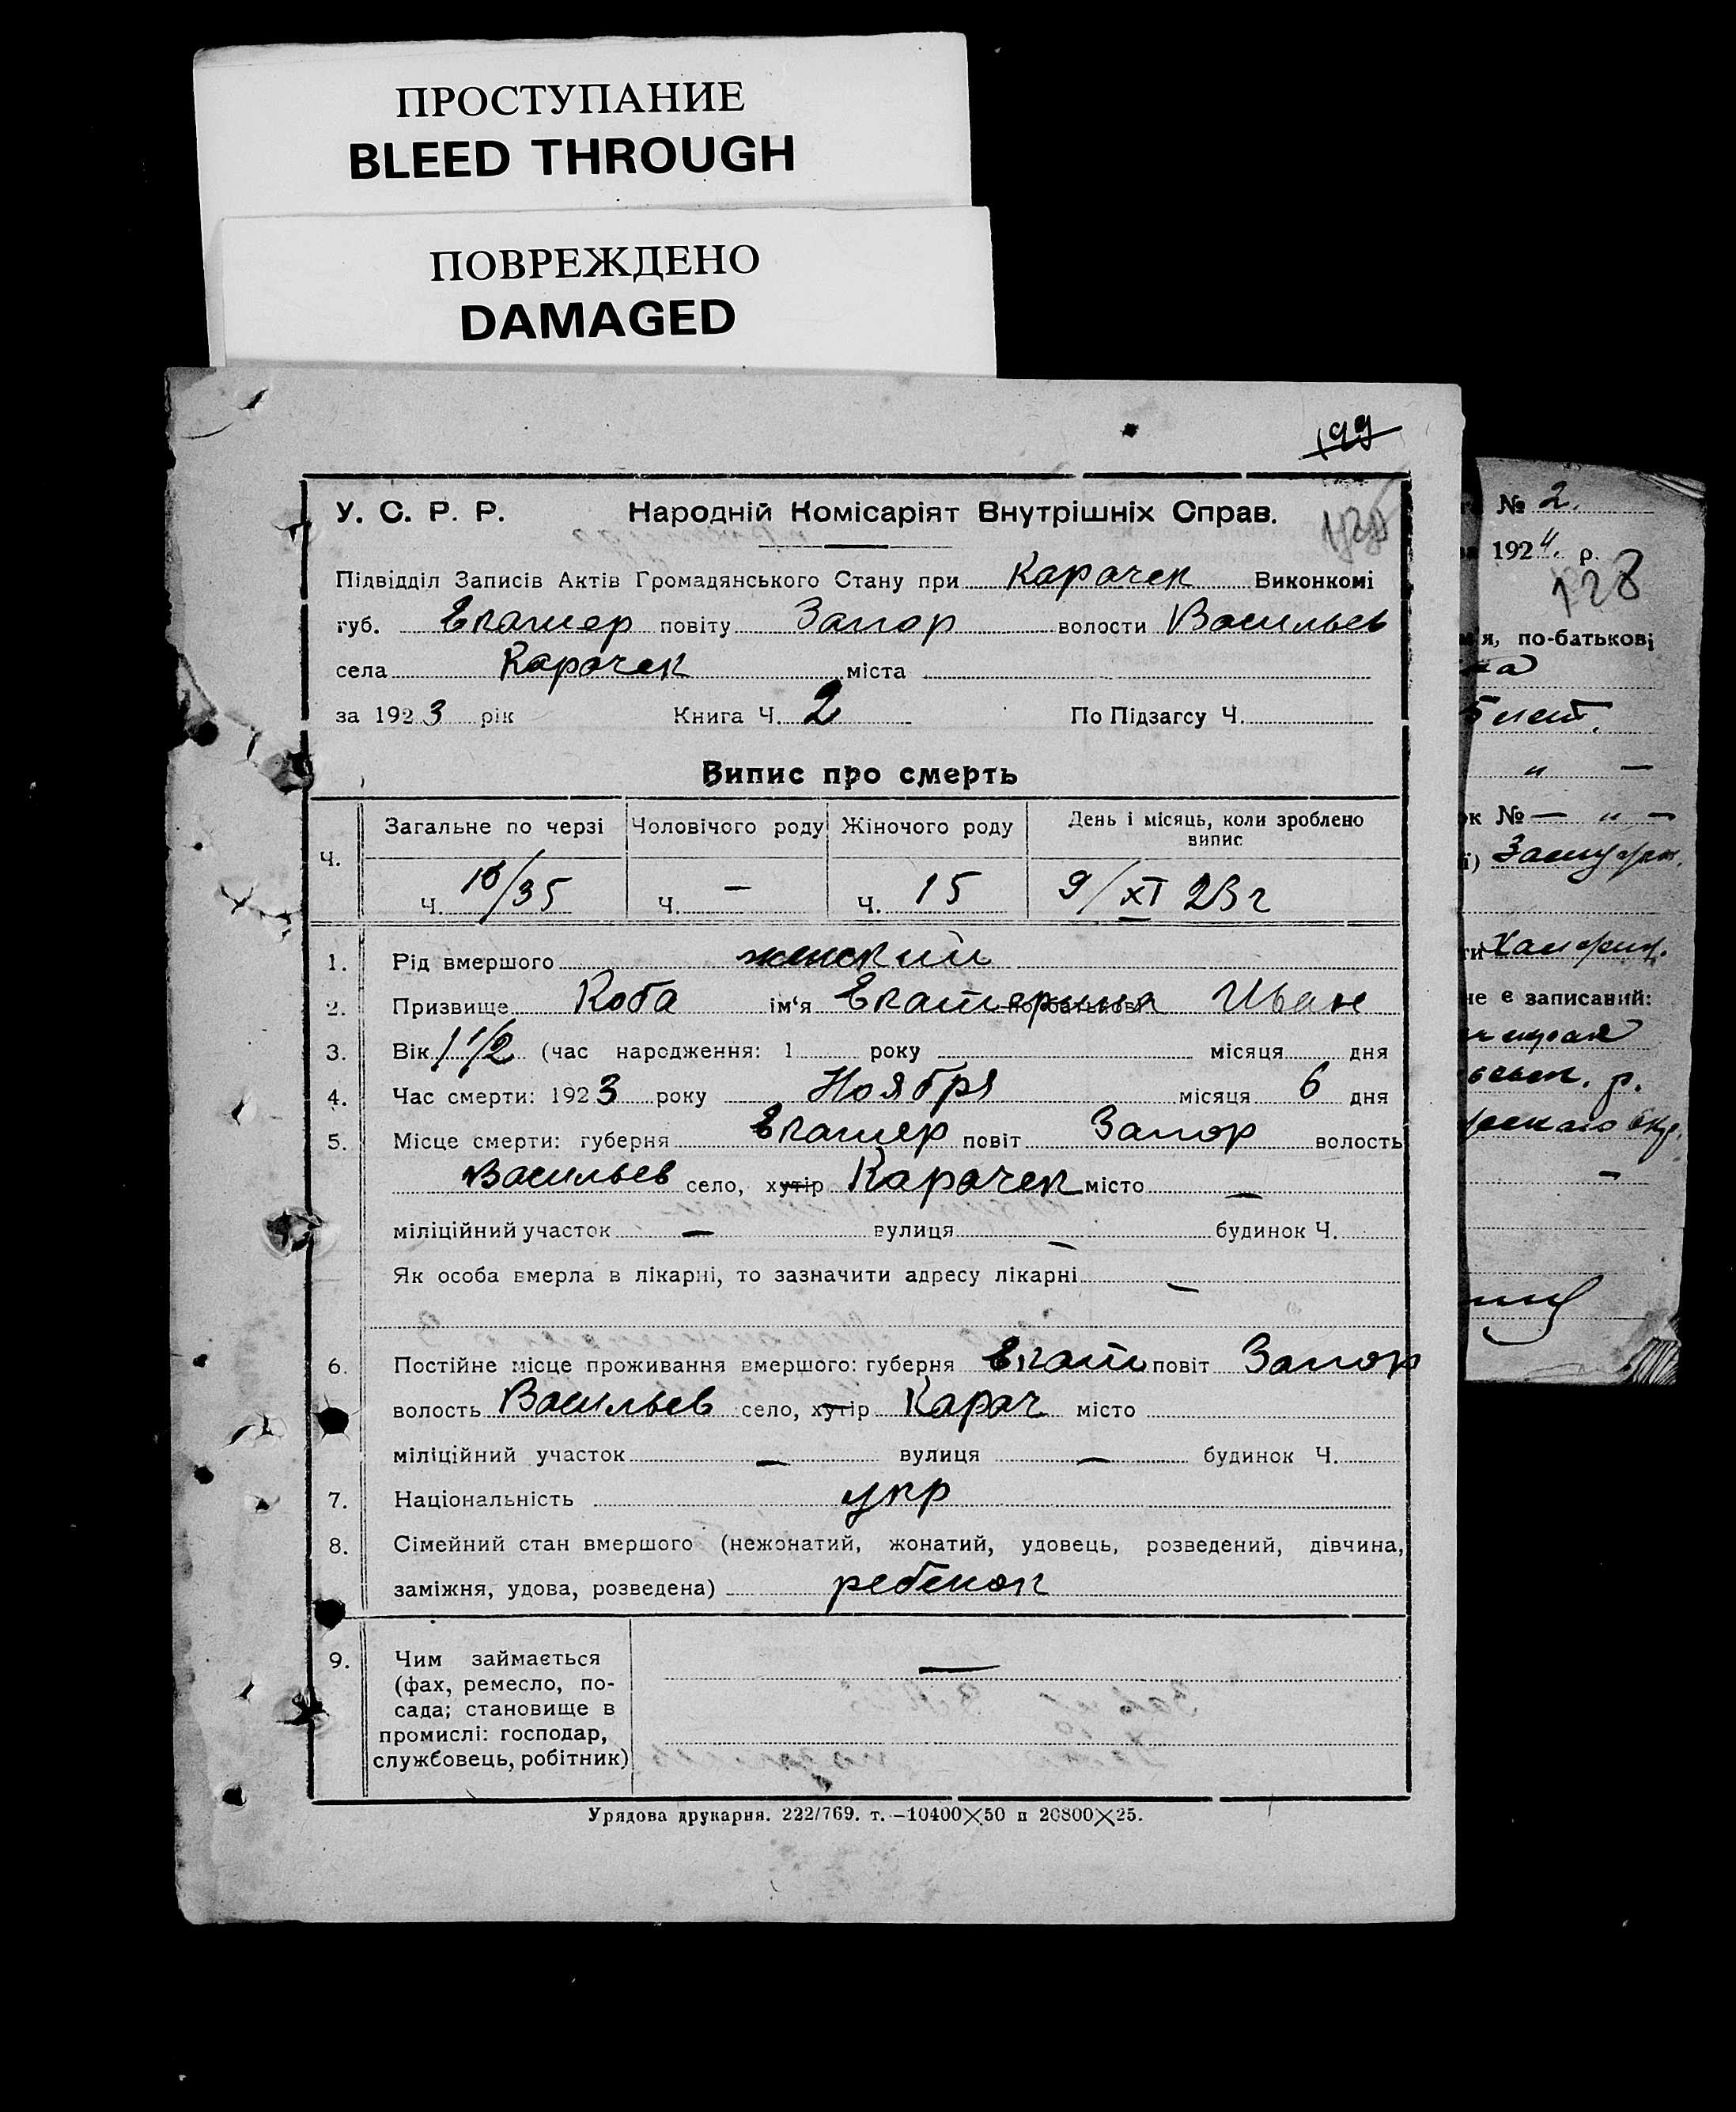 ПРОСТУПАНИЕ
BLEED THROUGH
ПОВРЕЖДЕНО
DAMAGED
199
У. С. Р. Р. Народній Комісаріят Внутрішніх Справ.
Підвідділ Записів Актів Громадянського Стану при Карачек Виконкомі
губ. Екатер повіту Запор волости Васильев
села Карачек міста
за 1923 рік Книга Ч. 2 По Підзагсу Ч.
Випис про смерть
Ч. Загальне по черзі Чоловічого роду Жіночого роду День і місяць, коли зроблено випис
Ч. /35 Ч. — Ч. 15 9/XI 23 г
1. Рід вмершого женский
2. Призвище Коба ім'я Екатерина по-батькові Иван
3. Вік 1 1/2 (час народження: 1 року місяця дня
4. Час смерти: 1923 року Ноября місяця 6 дня
5. Місце смерти: губерня Екатер повіт Запор волость
Васильев село, хутір Карачек місто —
міліційний участок — вулиця — будинок Ч.
Як особа вмерла в лікарні, то зазначити адресу лікарні —
6. Постійне місце проживання вмершого: губерня Екат повіт Запор
волость Васильев село, хутір Карач місто
міліційний участок — вулиця — будинок Ч.
7. Національність укр
8. Сімейний стан вмершого (нежонатий, жонатий, удовець, розведений, дівчина,
заміжня, удова, розведена) ребенок
9. Чим займається —
(фах, ремесло, по-
сада; становище в
промислі: господар,
службовець, робітник)
Урядова друкарня. 222/769. т.—10400×50 п 20800×25.
№ 2.
1924 р.
128
я, по-батькові
на
5 лет.
„ —
ок № — „ —
не є записаний:
р.
—